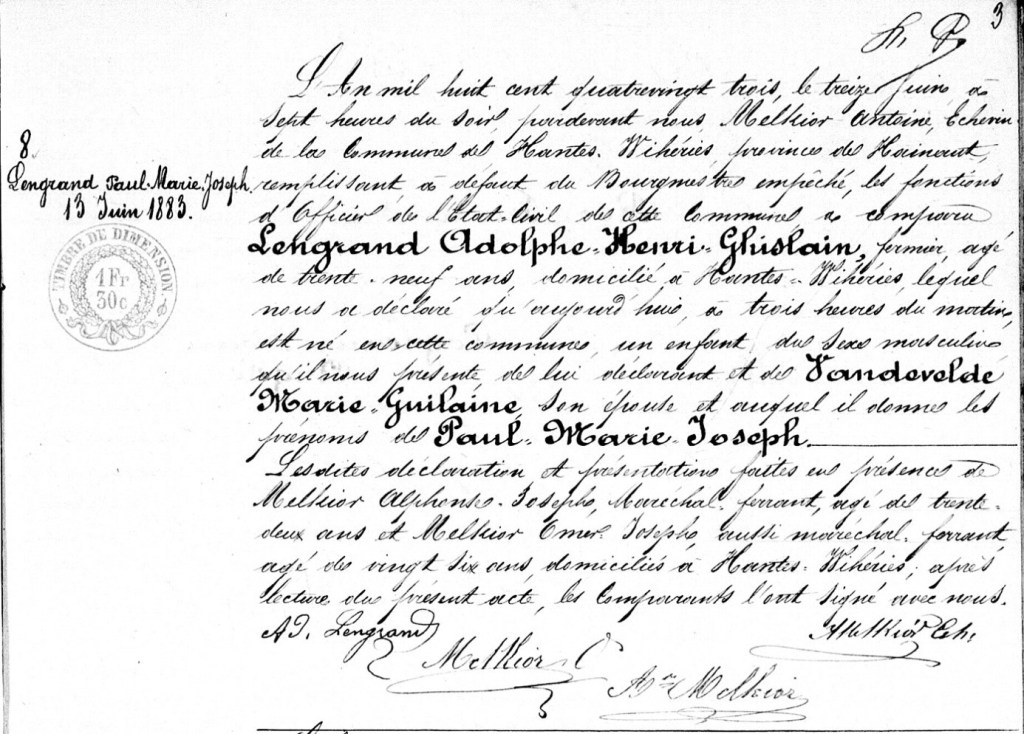 3
L'An mil huit cent quatrevingt trois, le treize Juin à
sept heures du soir, pardevant nous Melkior Antoine, Echevin
de la Commune de Hantes-Wihéries, province de Hainaut,
remplissant à défaut du Bourgmestre empêché, les fonctions
d'Officier de l'Etat-Civil de cette Commune a comparu
Lengrand Adolphe-Henri-Ghislain, fermier, agé
de trente-neuf ans, domicilié à Hantes-Wihéries, lequel
nous a déclaré qu'aujourd'hui, à trois heures du matin,
est né en cette commune, un enfant du sexe masculin
qu'il nous présente de lui déclarant et de Vandevelde
Marie-Guilaine, son épouse et auquel il donne les
prénoms de Paul-Marie-Joseph.
Lesdites déclaration et présentation faites en présence de
Melkior Alphonse-Joseph, Maréchal-ferrant, agé de trente-
deux ans et Melkior Omer-Joseph, aussi maréchal-ferrant,
agé de vingt six ans, domiciliés à Hantes-Wihéries; après
lecture du présent acte, les Comparants l'ont signé avec nous.
8.
Lengrand Paul-Marie-Joseph.
13 Juin 1883.
TIMBRE DE DIMENSION
1 Fr
30 c
Ad. Lengrand
AMelkior Ech.
Melkior
Melkior